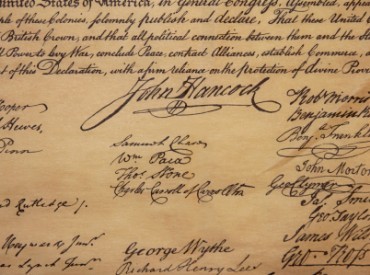 United States of America, in General Congress, Assembled, appea
ple of these Colonies, solemnly publish and declare, That these United C
British Crown, and that all political connection between them and the St
Power to levy War, conclude Peace, contract Alliances, establish Commerce, a
of this Declaration, with a firm reliance on the protection of divine Prov
John Hancock
Rob Morri
Hooper
Hewes,
Penn
Samuel Chase
Wm Paca
Thos Stone
Charles Carroll of Carrollton
Benjamin R
Benj Franklin
John Morton
Geo Clymer
Ja. Smi
Geo. Taylo
James Wil
Geo. Ross
Rutledge
Heyward Junr.
Lynch Junr.
George Wythe
Richard Henry Lee